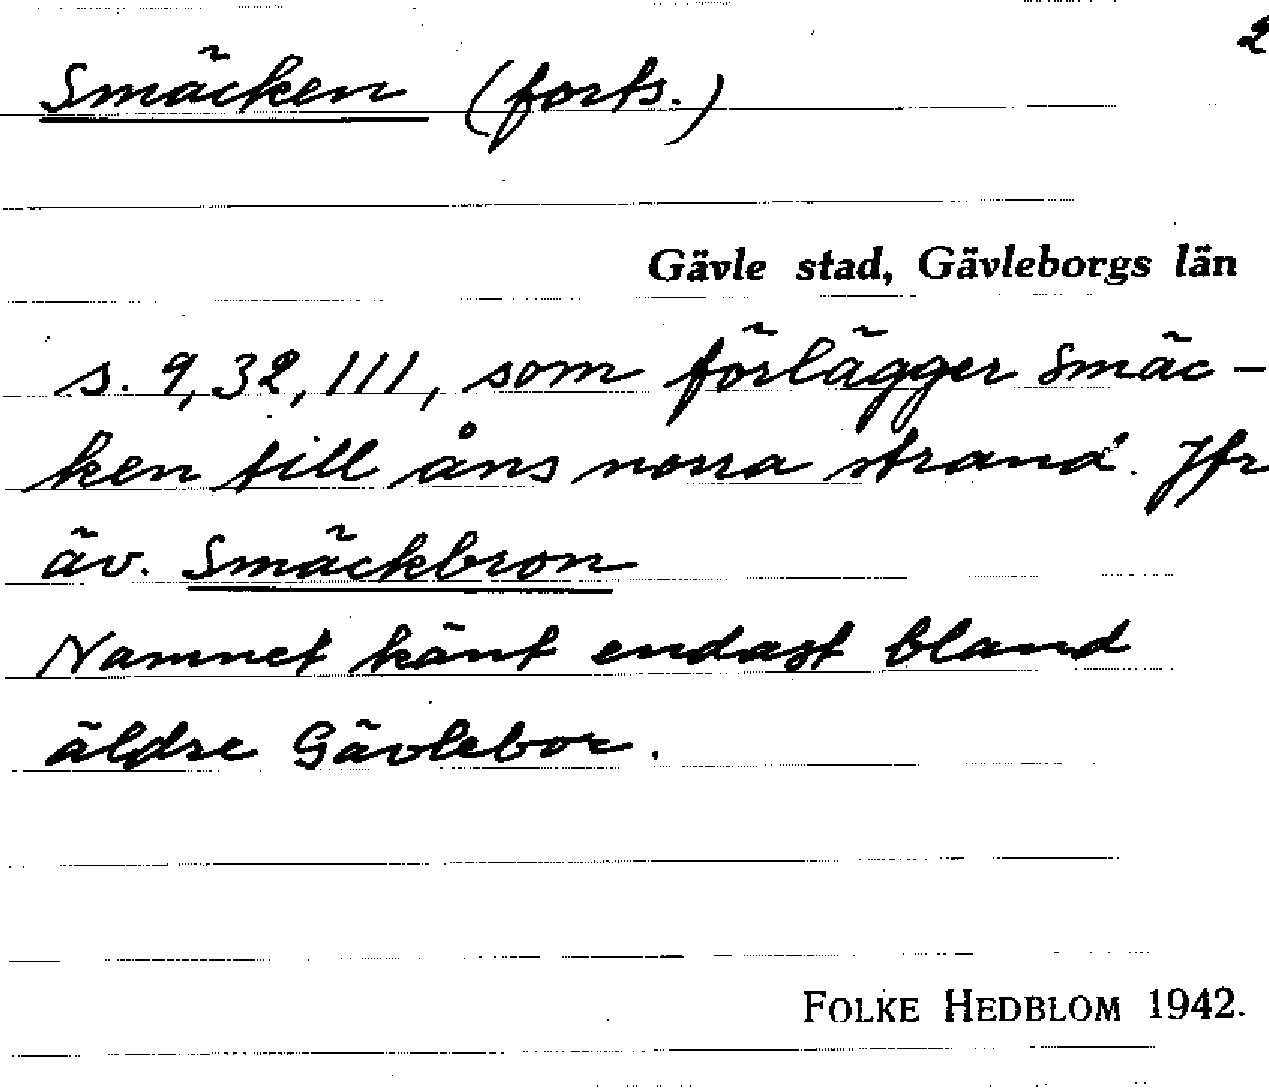 2
Smäcken (forts.)
Gävle stad, Gävleborgs län
s. 9, 32, 111, som förlägger Smäc-
ken till åns norra strand. Jfr
äv. Smäckbron
Namnet känt endast bland
äldre Gävlebor.
FOLKE HEDBLOM 1942.